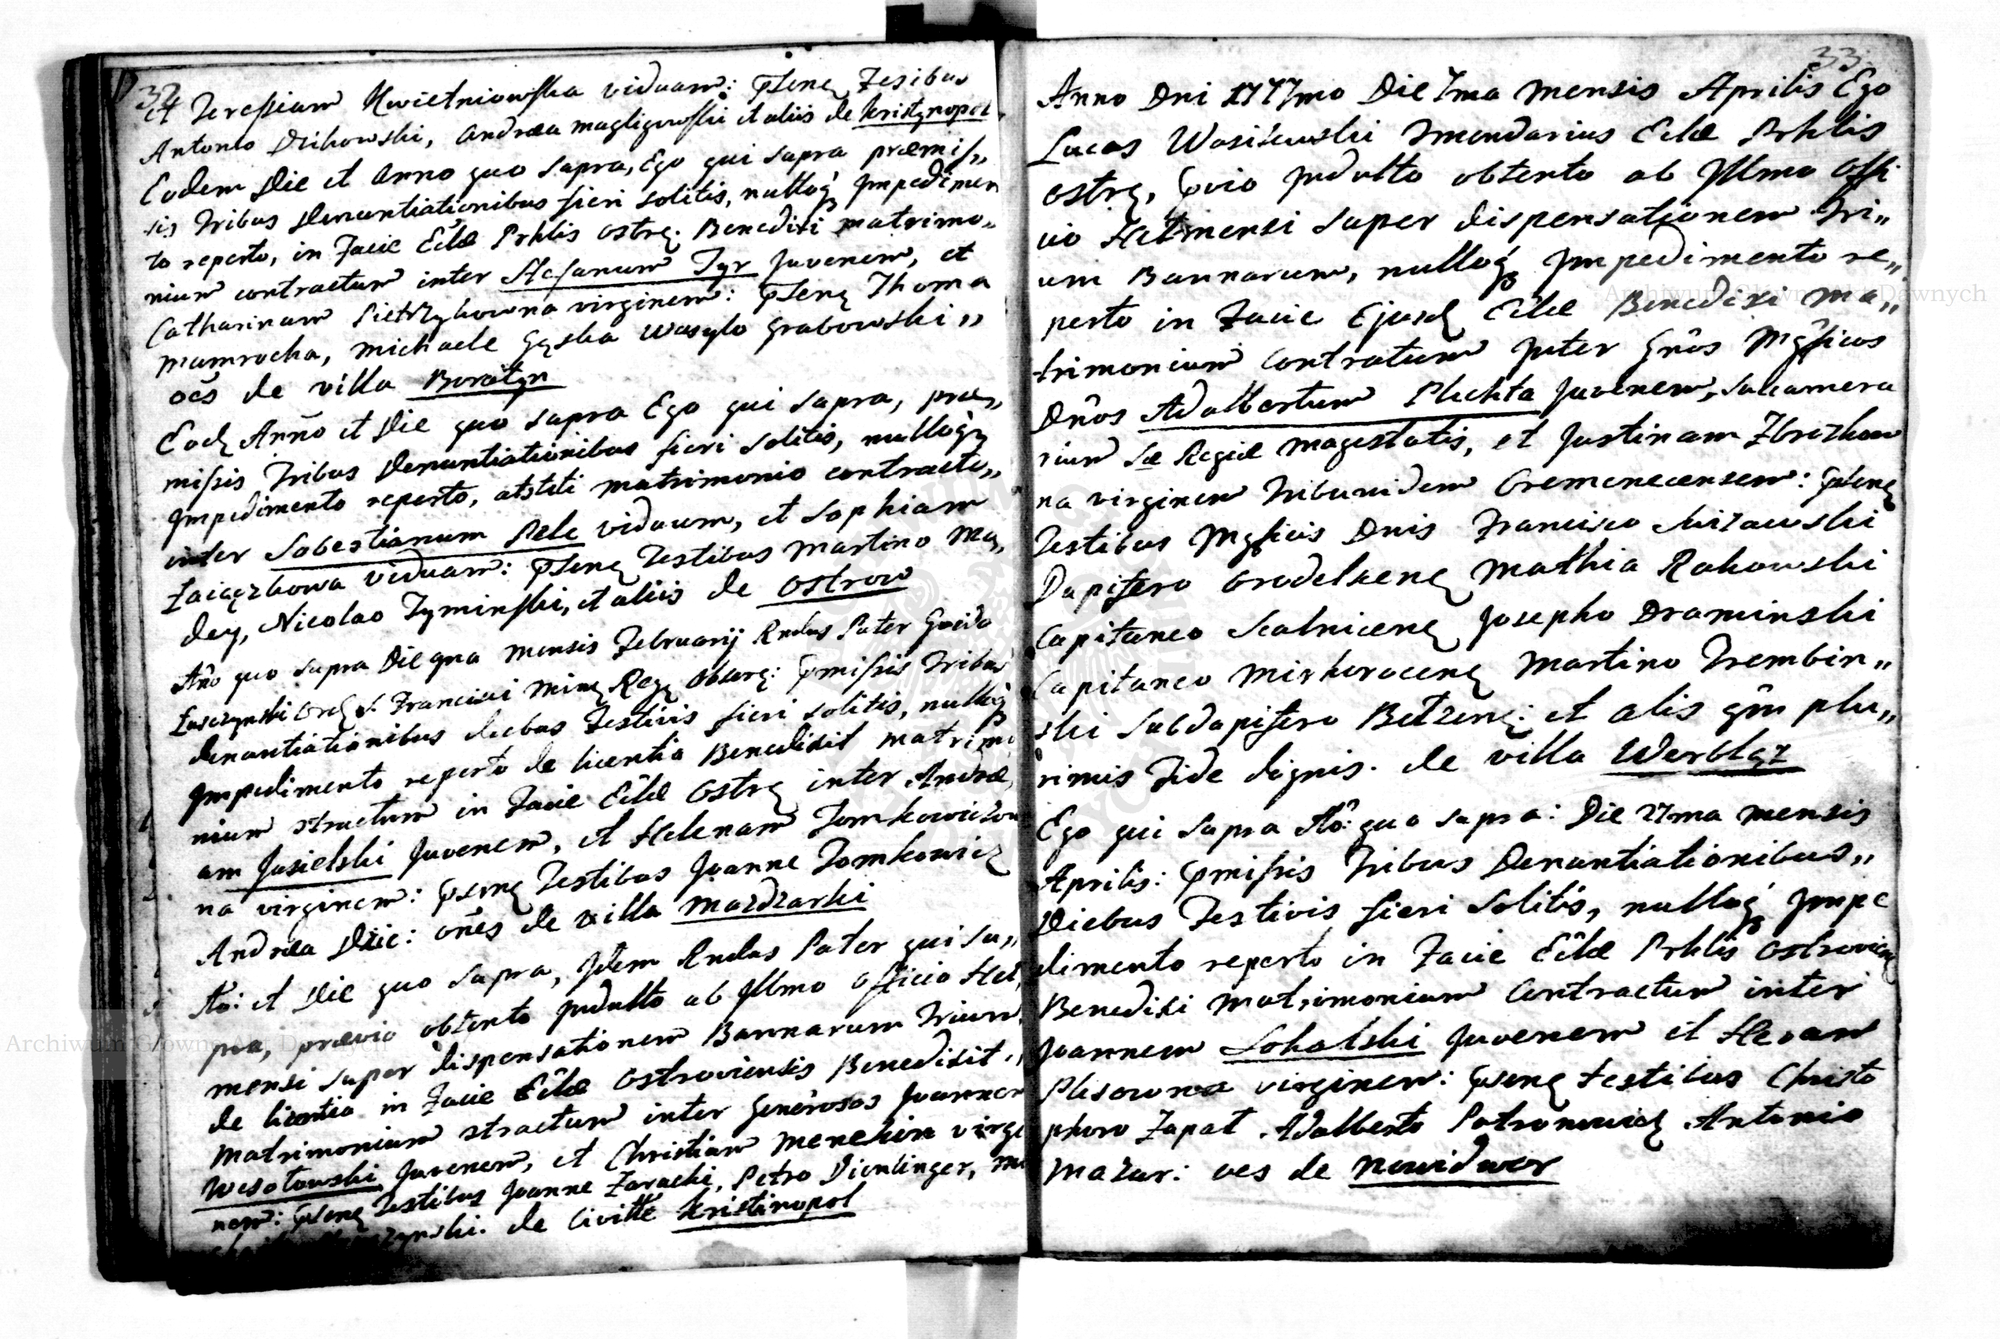 32
et Teressiam Kwietniowska viduam: pſenq Tesibus
Antonio Dzikowski, Andræa magligowski et aliis de Kristynopol.
Eodem Die et Anno quo supra, Ego qui supra præmis„
sis Tribus Denuntiationibus fieri solitis, nulloq impedimen
to reperto, in Facie Ecłæ Prhlis ostrę. Benedixi matrimo„
nium contractum inter Stefanum Tyr Juvenem, et
Catharinam Pietrzykowna virginem: pſenq Thoma
Mamrocha, Michaele Gęska Wasylo Grabowski „
oẽs de villa Boratyn
Eodq Anno et Die quo supra Ego qui supra, præ„
missis Tribus Denuntiationibus fieri solitis, nulloq
Impedimento reperto, atstiti matrimonio contracto„
inter Sabestianum Pele viduum, et Sophiam
Zaięczkowa viduam: pſenq Testibus Martino Ma„
dey, Nicolao Tyminski, et aliis de Ostrow
Año quo supra Die qna mensis Februarij Rndus Pater Guido
Ordq S. Francisci Minq Regq Obserq: pmissis Tribus
denuntiationibus diebus Festivis fieri solitis, nulloq
Impedimento reperto de licentia Benedixit matrimo
nium structum in Facie Ecłæ Ostrę inter Andræ
am Jasielski Juvenem, et Helenam Tomkowiczow
na virginem: pſenq Testibus Joanne Tomkowicz
Andræa Dzic: oñes de villa Mazdzarki
Ao: et Die quo supra, Idem Rndus Pater qui su„
pra, prævio obtento Indulto ab Illmo Officio Heł„
mensi super dispensationem Bannarum Trium,
de licentia in Facie Ecłæ Ostroviensis Benedixit„
Matrimonium structum inter Generosos Joannem
Wesołowski Juvenem, et Christiam Menchin virgi
nem: pſenq Testibus Joanne Zaracki, Petro Dientinger,
de Civitte Kristinopol
33
Anno Dni 1777mo Die 7ma Mensis Aprilis Ego
Lucas Wasilewski Imendarius Ecłæ Prhlis
Ostrę, pvio Indulto obtento ab Illmo Offi
cio Hełmensi super dispensationem Tri„
um Bannarum, nulloq Impedimento re„
perto in Facie Ejusdq Ecłæ Benedixi Ma„
trimonium Contratum Inter Gños Mgficos
Dños Adalbertum Plichta Juvenem, Succamera
rium Sæ Regiæ Magestatis, et Justinam Zbrozkow
na virginem Tribunidem Cremenecensem: pſenq
Testibus Mgficis Dnis Francisco Swizawski
Dapifero Grodelsenq Mathia Rakowski
Capitaneo Scalnicenq Josepho Draminski
Capitaneo Mirhorocenq Martino Trembin„
ski Subdapifero Bełzenq: et alis qm plu„
rimis Fide dignis. de villa Werbląz
Ego qui supra Ao: quo supra: Die 27ma mensis
Aprilis: pmissis Tribus Denuntiationibus„
Diebus Festivis fieri Solitis, nulloq Impe
dimento reperto in Facie Ecłæ Prhlis Ostrovienq
Benedixi Matrimonium Contractum inter
Joannem Sokalski Juvenem et Hevam
Plisowna virginem: pſenq testibus Christo
phoro Zapat Adalberto Antonio
Mazur: oes de Nowidwor
Archiwum Główne Akt Dawnych
Archiwum Główne Akt Dawnych